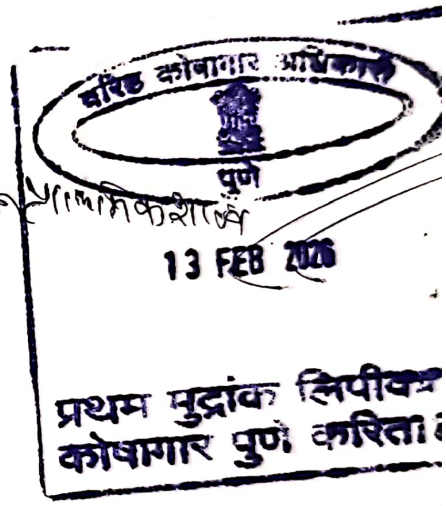 वरिष्ठ कोषागार अधिकारी
पुणे
13 FEB 2026
प्रथम मुद्रांक लिपीक
कोषागार पुणे करिता